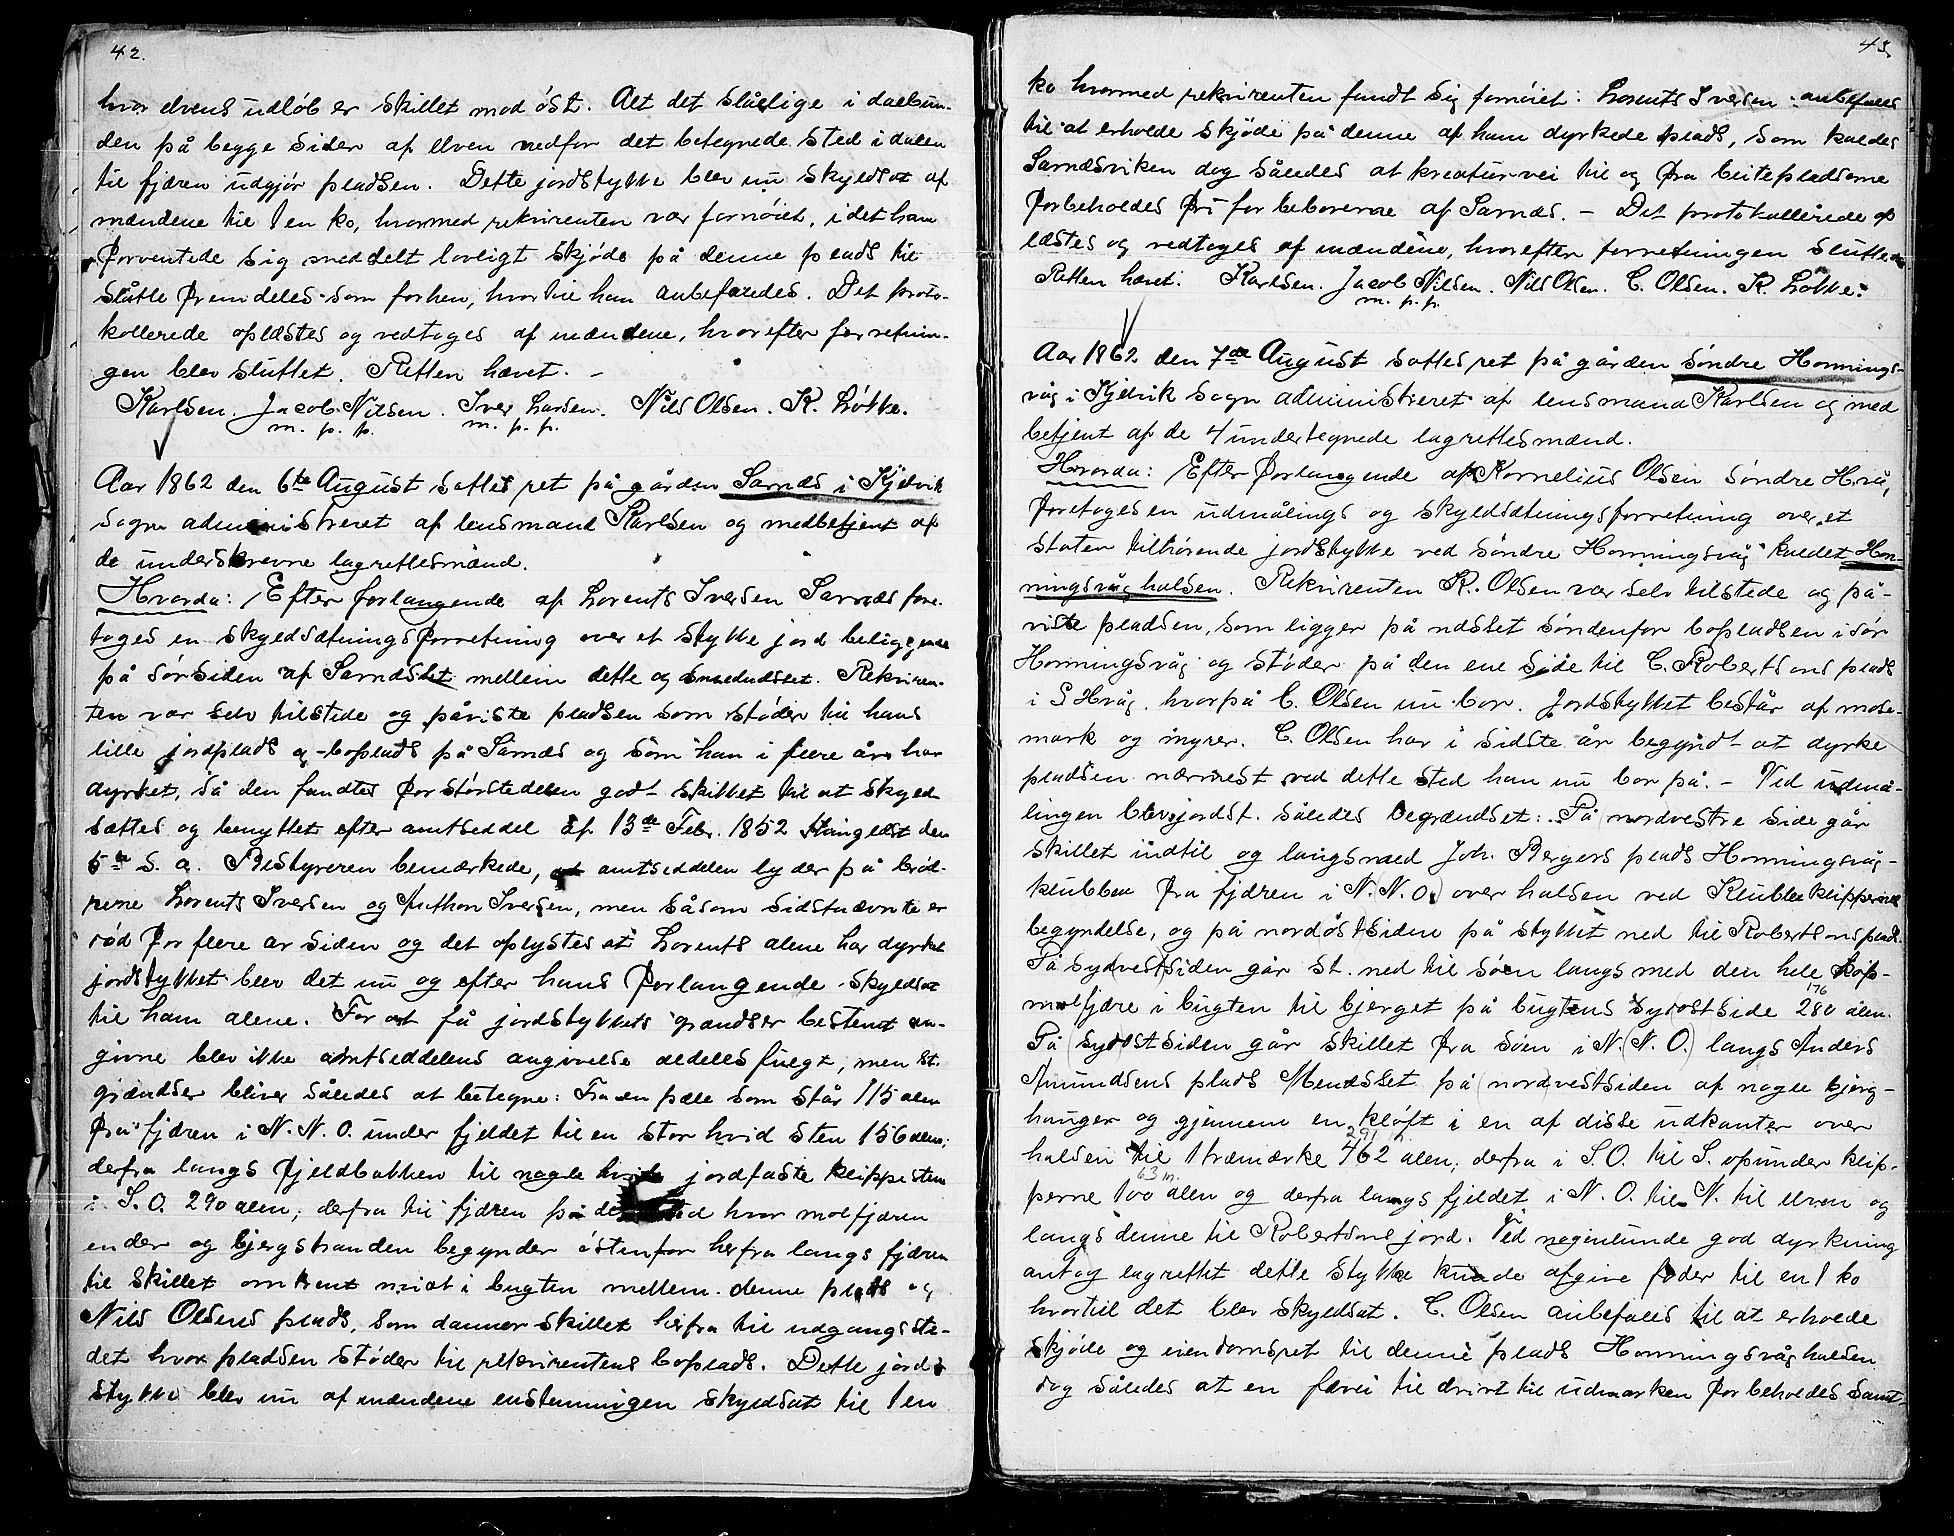 42.
hvor elvens udløb er skillet mod øst. Alt det slåelige i dalbun-
den på begge sider af elven nedfor det betegnede sted i dalen
til fjæren udgjør pladsen. Dette jordstykke blev nu skyldsat af
mændene til 1 en ko, hvormed rekvirenten var fornøiet, idet han
forventede sig meddelt lovligt skjøde på denne plads til
slåtte fremdeles som forhen, hvortil han anbefaledes. Det proto-
kollerede oplæstes og vedtoges af mændene, hvorefter forretnin-
gen blev sluttet. Retten hævet. -
Karlsen. Jacob Nilsen. Iver Larsen. Nils Olsen. K. Løkke.
m. p. p. m. p. p.
Aar 1862 den 6te August sattes ret på gården Sarnæs i Kjelvik
sogn administreret af lensmand Karlsen og medbetjent af
de underskrevne lagrettesmænd.
Hvorda: / Efter forlangende af Lorents Iversen Sarnæs fore-
toges en skyldsætningsforretning over et stykke jord beliggende
på sørsiden af Sarnæs mellem dette og . Rekviren-
ten var selv tilstede og påviste pladsen som støder til hans
lille jordplads og boplads på Sarnæs og som han i flere år har
dyrket, så den fandtes for størstedelen godt skikket til at skyld-
sættes og benyttet efter amtseddel af 13de Febr. 1852 thinglæst den
5te s. a. Bestyreren bemærkede, at amtseddelen lyder på brød-
rene Lorents Iversen og Anthon Iversen, men såsom sidstnævnte er
død for flere år siden og det oplystes at Lorents alene har dyrket
jordstykket blev det nu og efter hans forlangende skyldsat
til ham alene. For at få jordstykkets grændser bestemt an-
givne blev ikke amtseddelens angivelse aldeles fulgt, men st.
grændser bliver således at betegne: Fra en pæle som står 115 alen
fra fjæren i N. N. O. under fjeldet til en stor hvid sten 156 alen;
derfra langs fjeldbakken til nogle hvide jordfaste klippesten
i S. O. 290 alen; derfra til fjæren på det sted hvor molfjæren
ender og bjergstranden begynder østenfor herfra langs fjæren
til skillet omtrent midt i bugten mellem denne plads og
Nils Olsens plads, som danner skillet herfra til udgangsste-
det hvor pladsen støder til rekvirentens boplads. Dette jord-
stykke blev nu af mændene enstemmigen skyldsat til 1 en
43.
ko hvormed rekvirenten fandt sig fornøiet: Lorents Iversen anbefales
til at erholde skjøde på denne af ham dyrkede plads, som kaldes
Sarnæsviken dog således at kreaturvei til og fra beitepladserne
forbeholdes fri for beboerne af Sarnæs. - Det protokollerede op-
læstes og vedtoges af mændene, hvorefter forretningen sluttedes
Retten hævet: Karlsen. Jacob Nilsen. Nils Olsen. C. Olsen. K. Løkke.
m. p. p.
Aar 1862 den 7de August sattes ret på gården søndre Honnings-
våg i Kjelvik sogn administreret af lensmand Karlsen og med
betjent af de 4 undertegnede lagrettesmænd.
Hvorda: / Efter forlangende af Kornelius Olsen søndre Hvåg,
foretoges en udmålings og skyldsætningsforretning over et
staten tilhørende jordstykke ved søndre Honningsvåg kaldet Hon-
ningsvåghalsen. Rekvirenten K. Olsen var selv tilstede og på-
viste pladsen, som ligger på næsset søndenfor bopladsen i sør
Honningsvåg og støder på den ene side til C. Robertsons plads
i S Hvåg. hvorpå C. Olsen nu bor. Jordstykket består af mose-
mark og myrer. C. Olsen har i sidste år begyndt at dyrke
pladsen nærmest ved dette sted han nu bor på. - Ved udmå-
lingen blev jordst. således begrændset: På nordvestre side går
skillet indtil og langsmed Joh. Bergers plads Honningsvåg-
klubben fra fjæren i N. (N. O.) over halsen ved Klubbeklippernes
begyndelse, og på nordøstsiden på stykket ned til Robertsons plads.
På syd(vest)siden går st. ned til søen langs med den hele
molfjære i bugten til bjerget på bugtens sydostside 280 alen.
176
På (sydost)siden går skillet fra søen i N. (N. O.) langs Anders
Amundsens plads Menæsset på (nord)vestsiden af nogle bjerg-
hauger og gjennem en kløft i en af disse udkanter over
291
halsen til 1 træmærke 462 alen; derfra i S. O. til S. opunder klip-
63 m.
perne 100 alen og derfra langs fjeldet i N. O. til N. til elven og
langs denne til Robertsons jord. Ved nogenlunde god dyrkning
antog lagrettet dette stykke kunde afgive foder til en 1 ko
hvortil det blev skyldsat. C. Olsen anbefales til at erholde
skjøde og eiendomsret til denne plads Honningsvåghalsen
dog således at en færei til drivt til udmarken forbeholdes samt-